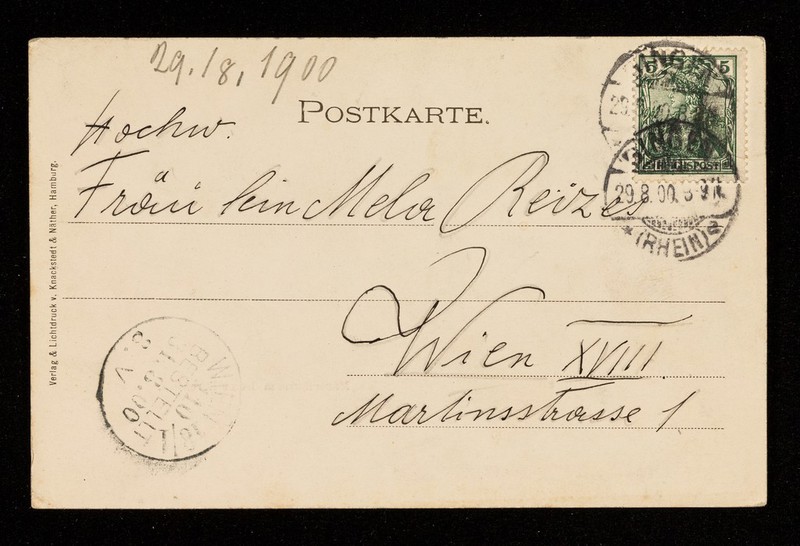 29./8. 1900
POSTKARTE.
Hochw.
Fräulein Mela Reize
Wien XVIII
Martinsstrasse 1
Verlag & Lichtdruck v. Knackstedt & Näther, Hamburg.
5 5
REICHSPOST
BINGEN
29.8.00. 8-9N.
* (RHEIN) a
WIEN 18/1
BESTELLT
31.8.00
8. V